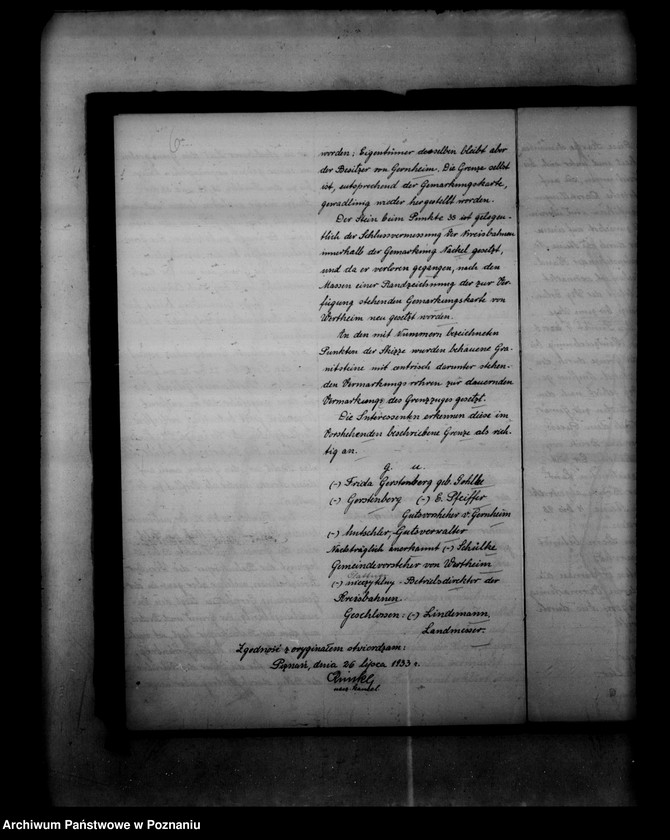 worden; Eigentümer desselben bleibt aber
der Besitzer von Gernheim. Die Grenze selbst
ist, entsprechend der Gemarkungskarte,
geradlinig wieder hergestellt worden.
Der Stein beim Punkte 35 ist gelegen-
tlich der Schlussvermessung der Kreisbahnen
innerhalb der Gemarkung Nackel gesetzt,
und da er verloren gegangen, nach den
Massen einer Handzeichnung der zur Ver-
fügung stehenden Gemarkungskarte von
Wertheim neu gesetzt worden.
In den mit Nummern bezeichneten
Punkten der Skizze wurden behauene Gra-
nitsteine mit centrisch darunter stehen-
den Vermarkungsrohren zur dauernden
Vermarkung des Grenzzuges gesetzt.
Die Interessenten erkennen diese im
Vorstehenden beschriebene Grenze als rich-
tig an.
g. u.
(-) Frida Gerstenberg geb. Gehlke
(-) Gerstenberg (-) E. Pfeiffer
Gutsvorsteher v. Gernheim
(-) Mutschler, Gutsverwalter
Nachträglich anerkannt (-) Schülke
Gemeindevorsteher von Wertheim
(-) nieczytelny - Betriebsdirektor der
Kreisbahnen
Geschlossen: (-) Lindemann
Landmesser.
Zgodność z oryginałem stwierdzam:
Poznań, dnia 26 lipca 1933 r.
Archiwum Państwowe w Poznaniu